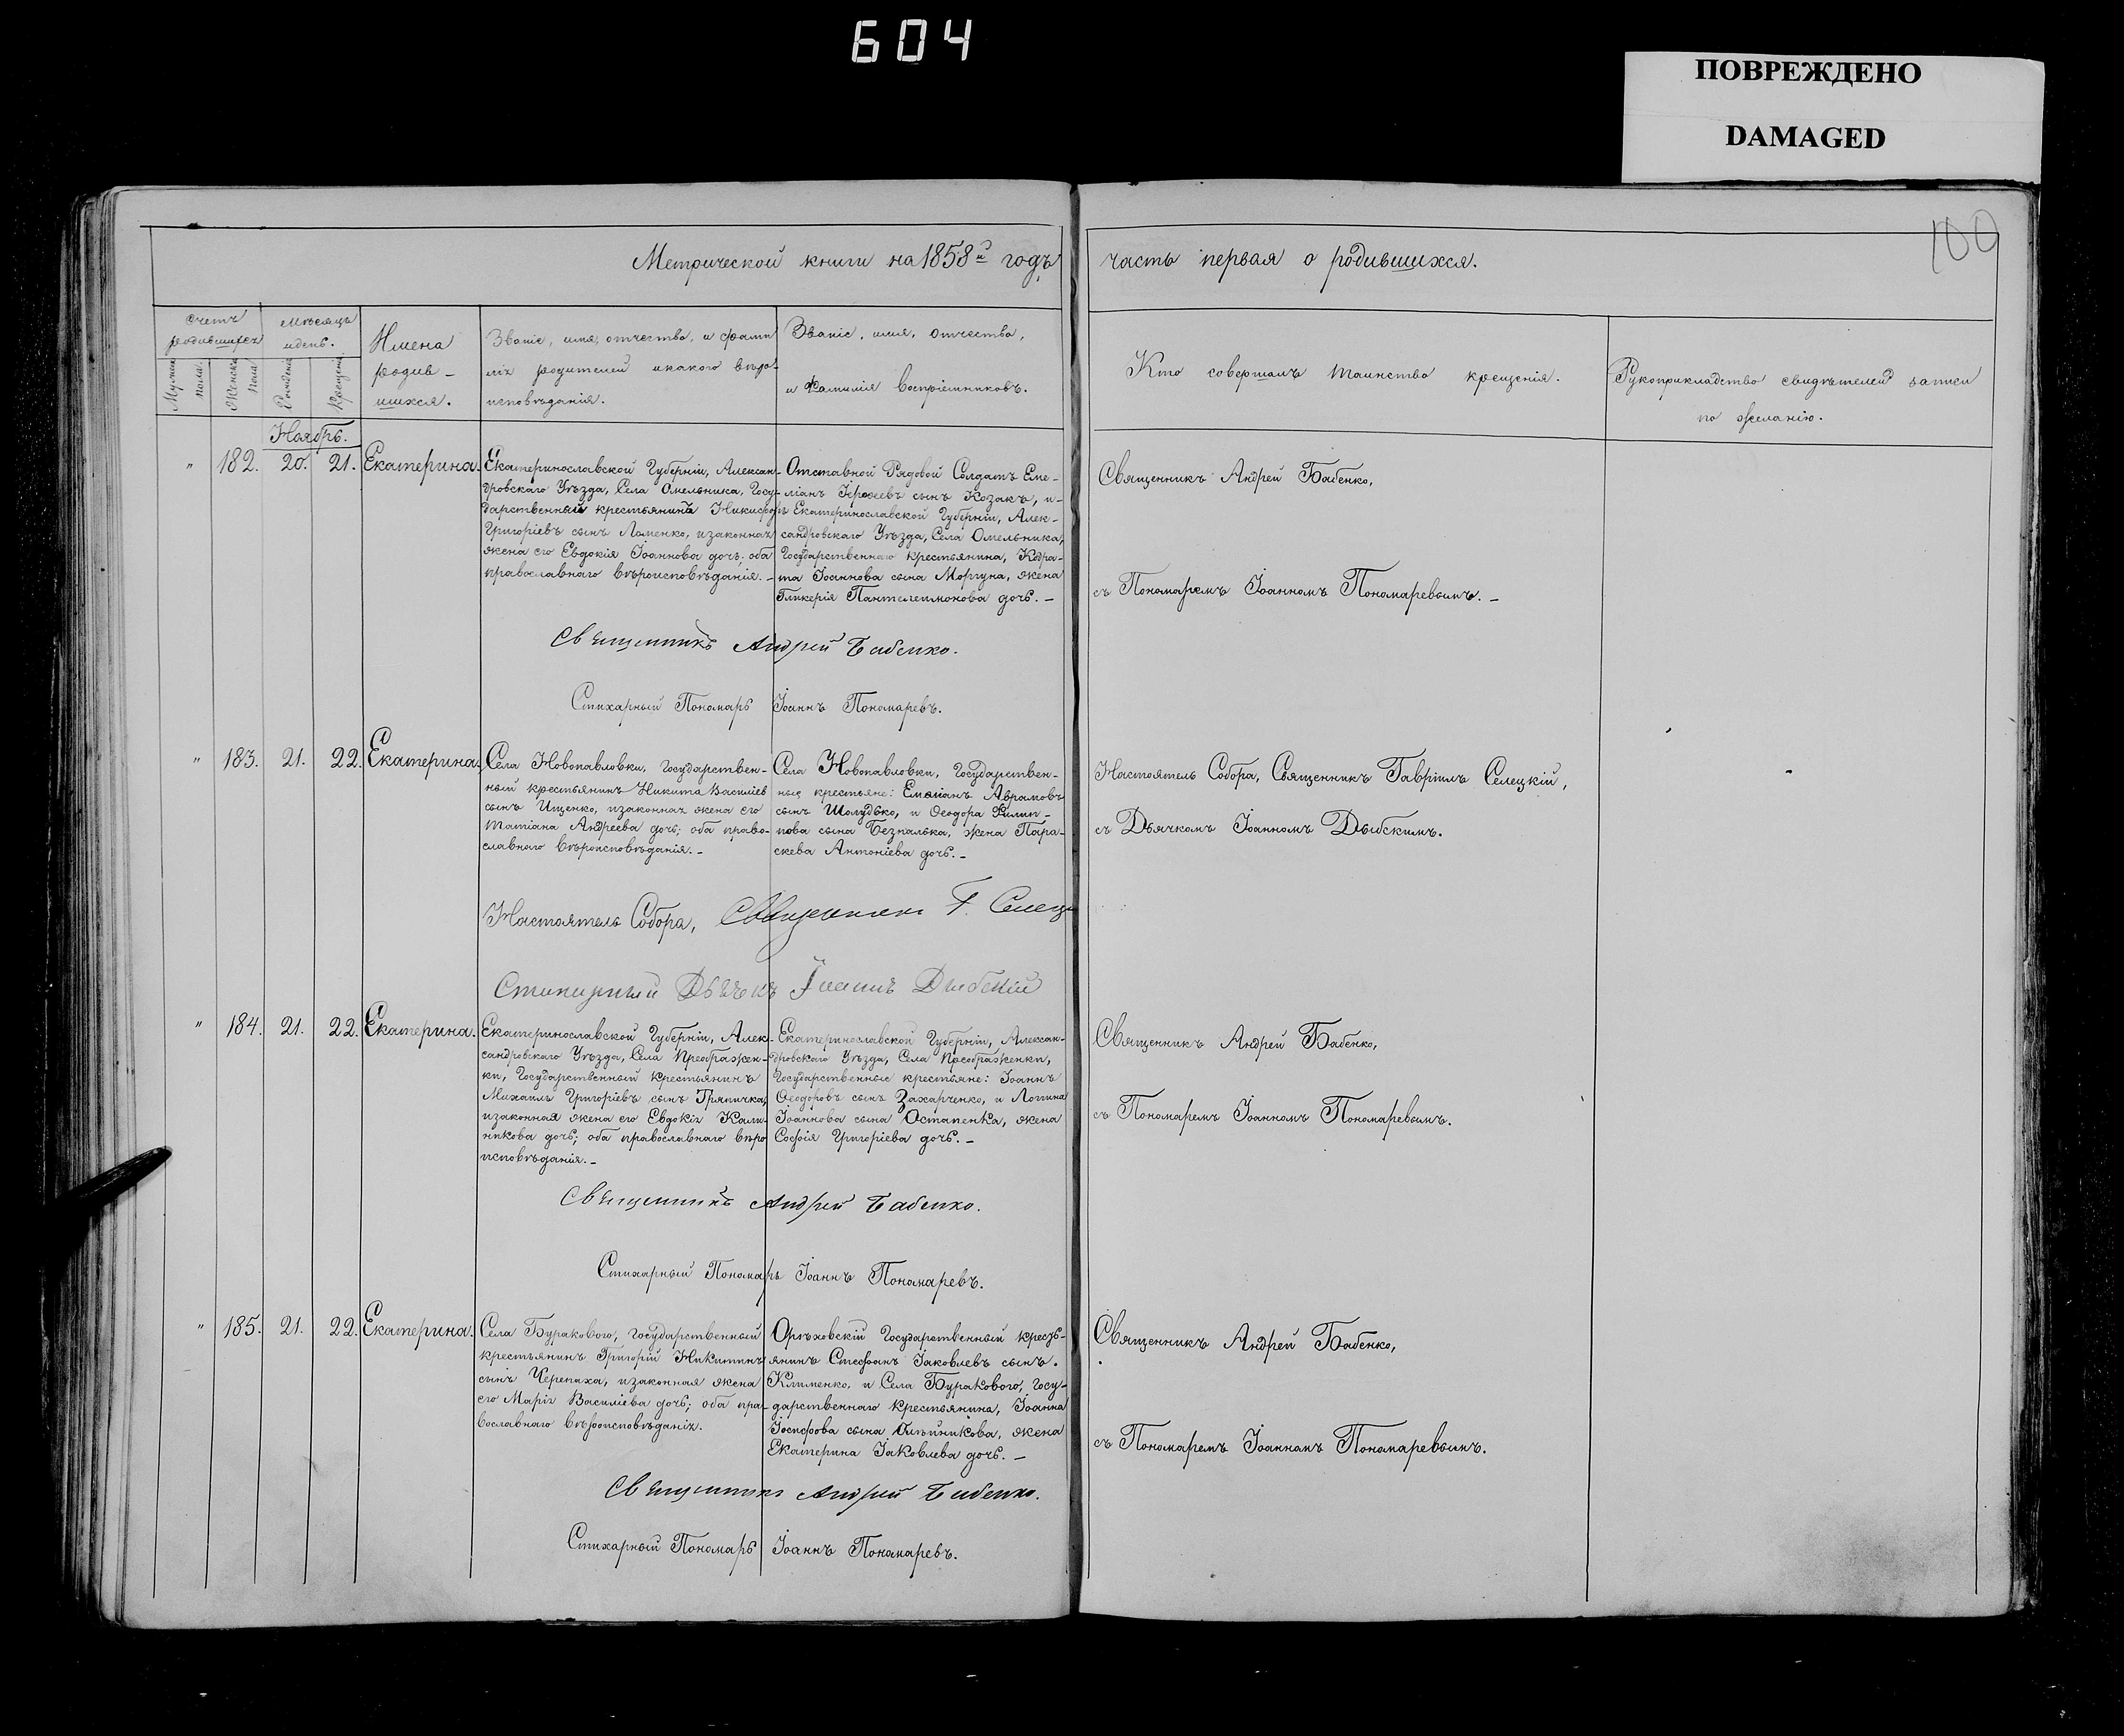 604
ПОВРЕЖДЕНО
DAMAGED
100
Метрической книги на 1858й годъ часть первая о родившихся.
Счетъ родившихся
Мѣсяцъ и день.
Мужска пола.
Женска пола
Рожденія
Крещенія
Имена родив-
шихся.
Званіе, имя, отчество, и фами
лія родителей и какого вѣро-
исповѣданія.
Званіе, имя, отчество,
и фамилія воспріемниковъ.
Кто совершалъ таинство крещенія.
Рукоприкладство свидѣтелей записи
по желанію.
Ноябрь.
" 182. 20. 21. Екатерина.
Екатеринославской Губерніи, Алексан-
дровскаго Уѣзда, Села Омельника, Госу-
дарственный крестьянинъ Никифоръ
Григоріевъ сынъ Ломенко, и законная
жена его Евдокія Іоаннова дочь, оба
православнаго вѣроисповѣданія. -
Отставной Рядовой Солдатъ Еме-
ліанъ сынъ Козакъ, и
Екатеринославской Губерніи, Алек-
сандровскаго Уѣзда, Села Омельника,
Государственнаго крестьянина, Кодра-
та Іоаннова сына Моргуна, жена
Гликерія Пантелеимонова дочь. -
Священникъ Андрей Бабенко,
съ Пономаремъ Іоанномъ Пономаревымъ. -
Священникъ Андрей Бабенко.
Стихарный Пономарь Іоаннъ Пономаревъ.
" 183. 21. 22. Екатерина.
Села Новопавловки, Государствен-
ный крестьянинъ Никита Василіев
сынъ Ищенко, и законная жена его
Татіана Андреева дочь; оба право-
славнаго вѣроисповѣданія. -
Села Новопавловки, Государствен-
ные крестьяне: Емеліанъ Аврамовъ
сынъ Шолудько, и Ѳеодора Филип-
пова сына Безпалька, жена Пара-
скева Антоніева дочь. -
Настоятель Собора, Священникъ Гавріилъ Селецкій,
съ Дьячкомъ Іоанномъ Дыбскимъ.
Настоятель Собора, Священникъ Г. Селец
Стихарный Дьячекъ Іоаннъ Дыбскій
" 184. 21. 22. Екатерина.
Екатеринославской Губерніи, Алек-
сандровскаго Уѣзда, Села Преображен-
ки, Государственный крестьянинъ
Михаилъ Григоріевъ сынъ Грипичка,
и законная жена его Евдокія Кали-
никова дочь; оба православнаго вѣро
исповѣданія. -
Екатеринославской Губерніи, Алексан-
дровскаго Уѣзда, Села Преображенки,
Государственные крестьяне: Іоаннъ
Ѳеодоровъ сынъ Захарченко, и Логина
Іоаннова сына Остапенка, жена
Софія Григоріева дочь. -
Священникъ Андрей Бабенко,
съ Пономаремъ Іоанномъ Пономаревымъ.
Священникъ Андрей Бабенко.
Стихарный Пономарь Іоаннъ Пономаревъ.
" 185. 21. 22. Екатерина.
Села Буракового, Государственный
крестьянинъ Григорій Никитинъ
сынъ Черепаха, и законная жена
его Марія Василіева дочь; оба пра-
вославнаго вѣроисповѣданія.
Орѣховскій Государственный кресть-
янинъ Стефанъ Іаковлевъ сынъ
Клименко, и Села Буракового, Госу-
дарственнаго крестьянина, Іоанна
Іосифова сына Олѣйникова, жена
Екатерина Іаковлева дочь. -
Священникъ Андрей Бабенко,
съ Пономаремъ Іоанномъ Пономаревымъ.
Священникъ Андрей Бабенко.
Стихарный Пономарь Іоаннъ Пономаревъ.